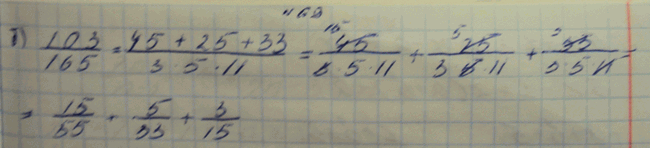 168
б) 103/165 = (45 + 25 + 33)/(3 · 5 · 11) = 45/(3 · 5 · 11) + 25/(3 · 5 · 11) + 33/(3 · 5 · 11) =
= 15/55 + 5/33 + 3/15